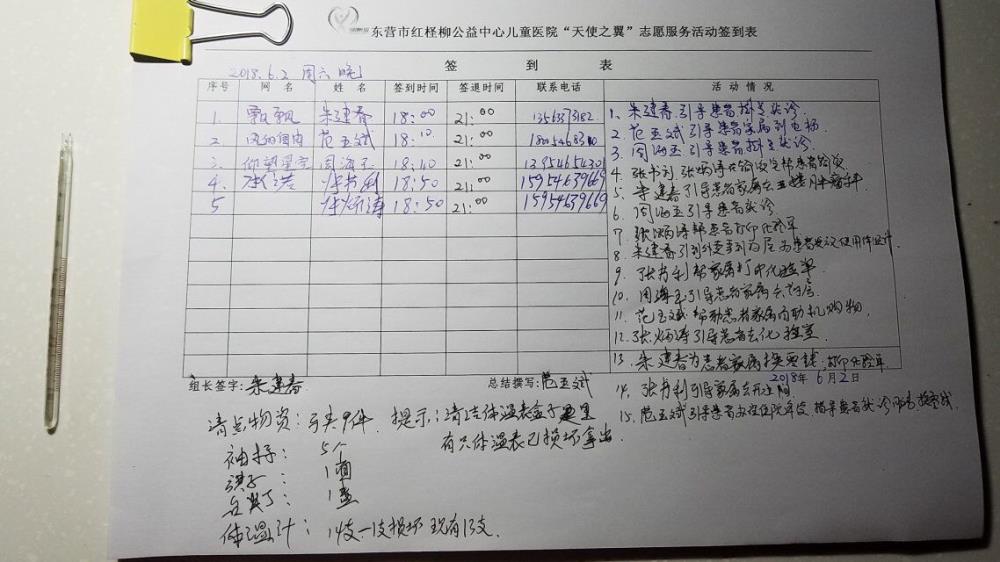 东营市红柽柳公益中心儿童医院“天使之翼”志愿服务活动签到表
签 到 表
2018.6.2 周六 晚
序号 网 名 姓 名 签到时间 签退时间 联系电话 活 动 情 况
1. 甄飘 朱建春 18:00 21:00 13563373182
2 范玉斌 18:10 21:00
3 仰望星空 周海玉 18:40 21:00 13954654301
4. 张书利 18:50 21:00 15954639669
5 张炳涛 18:50 21:00 15954639669
1. 朱建春引导患者挂号就诊
2 范玉斌引导患者家属到电梯
3. 周海玉引导患者挂号就诊
4. 张书利 张炳涛
5. 朱建春引导患者家属去
6. 周海玉引导患者就诊
7. 张炳涛帮患者打印化验单
8. 朱建春引到
9. 张书利帮家属打印化验单
10. 周海玉引导患者家属去药房
11. 范玉斌帮助患者家属自助机购物
12. 张炳涛引导患者去化验室
13. 朱建春为患者家属换零钱:打印化验单
组长签字:朱建春 总结撰写:范玉斌 2018年6月2日
14. 张书利引导家属去开水间
15. 范玉斌引导患者办
请点物资:马夹9件 提示:请注意体温表盒子里
有只体温表已损坏拿出
袖标: 5个
旗子: 1面
1盒
体温计: 14支-1支损坏 现有13支.